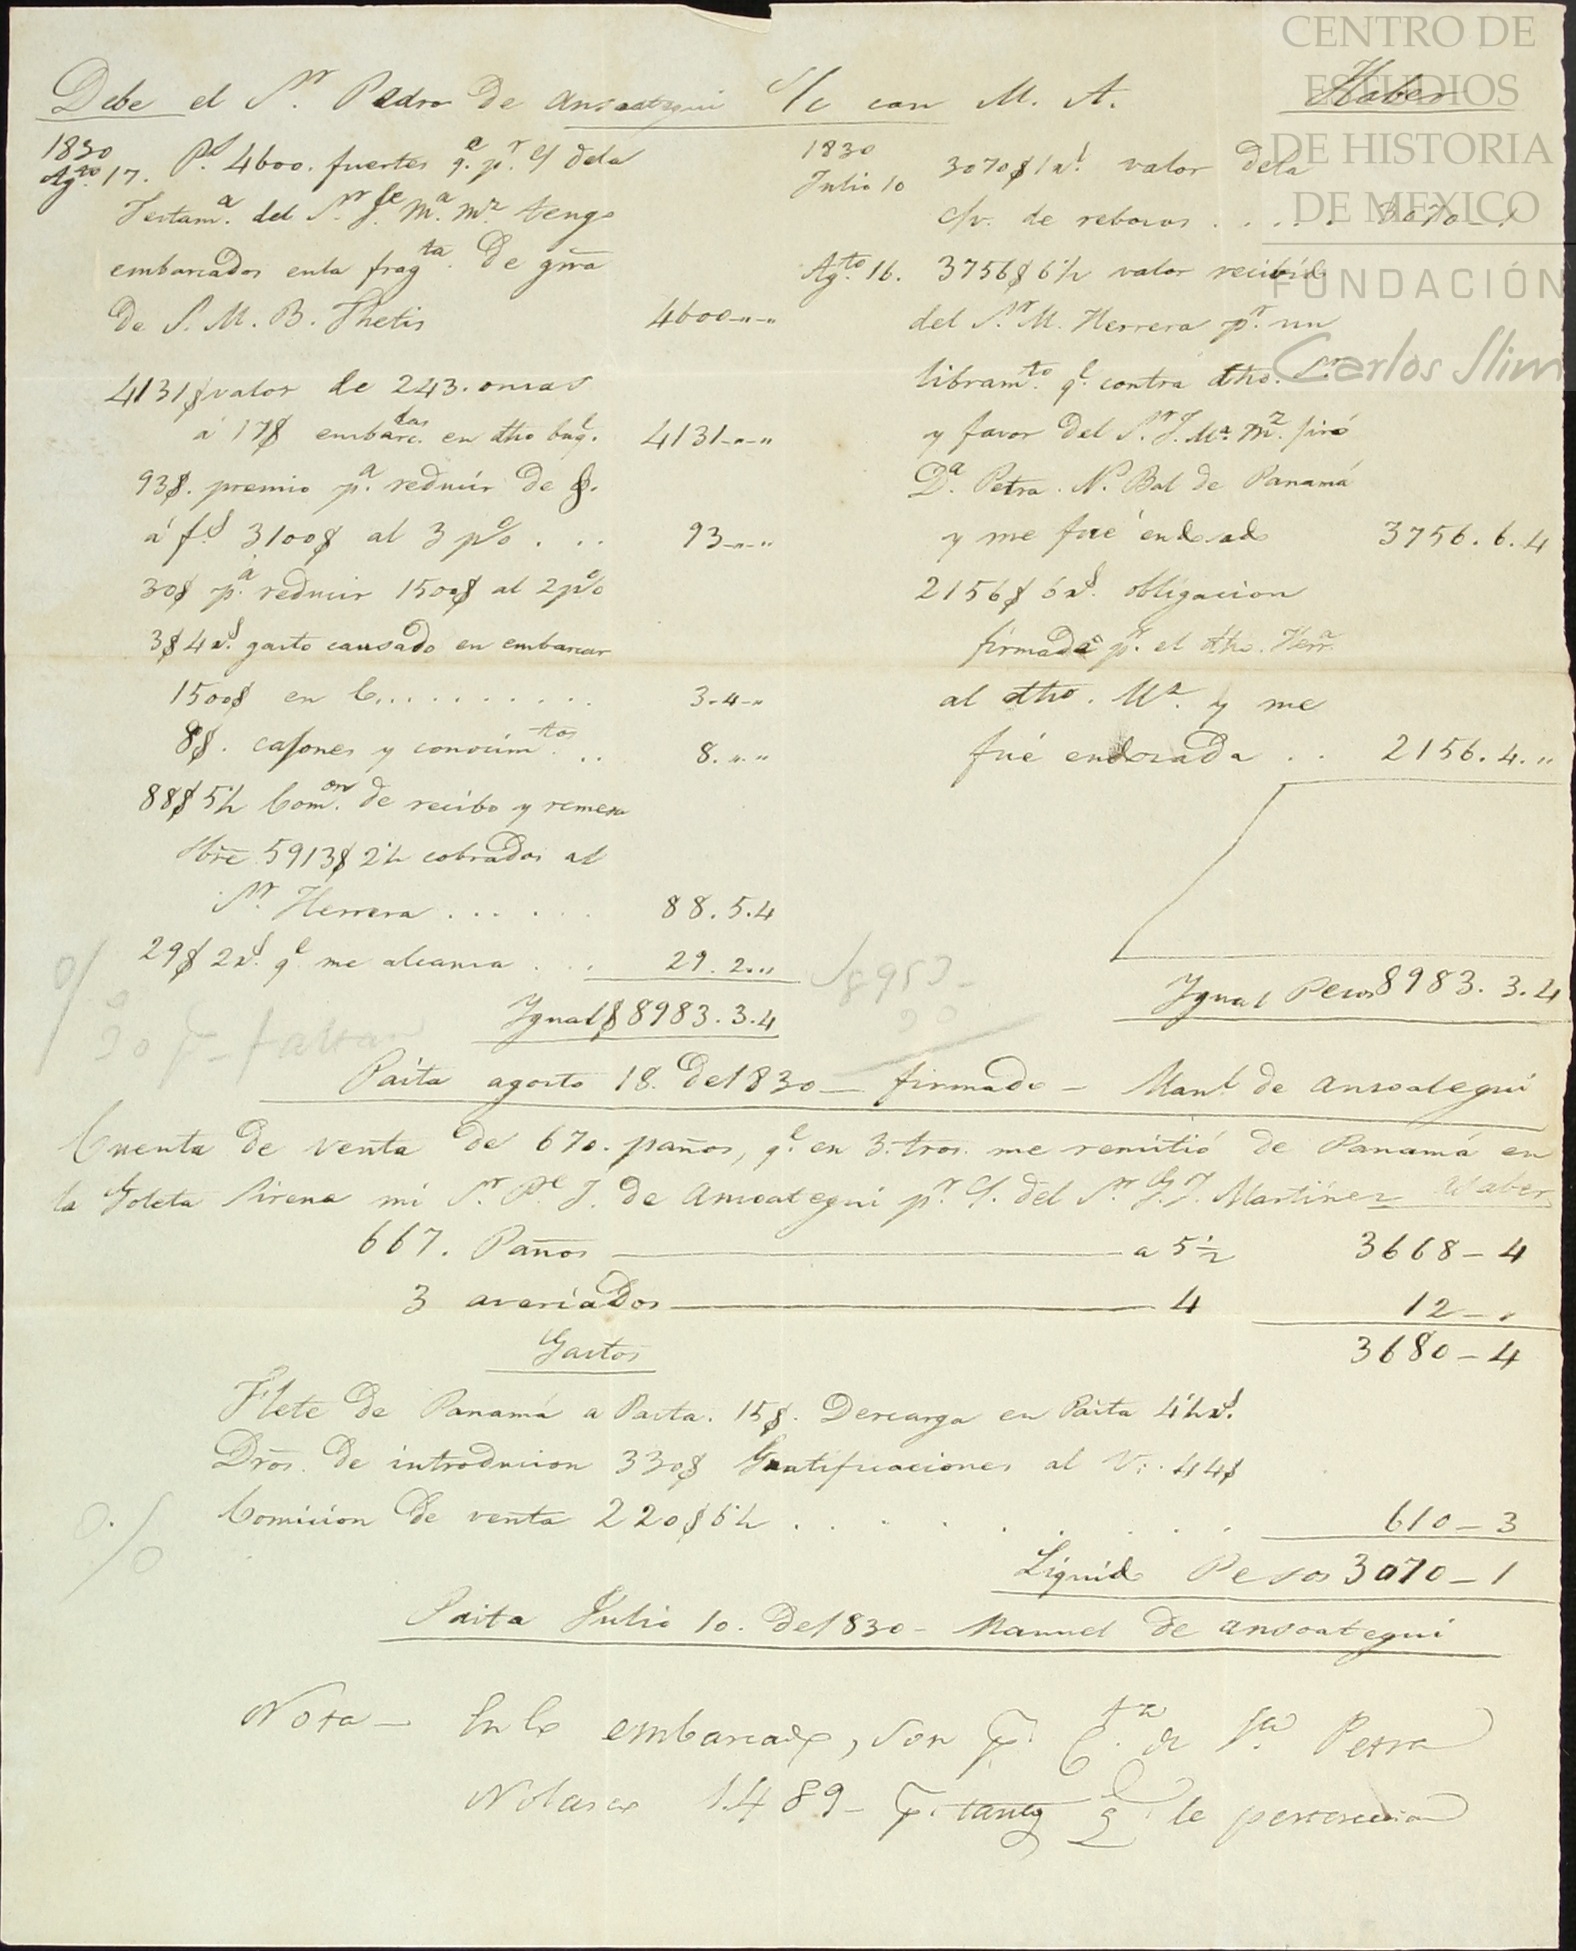 CENTRO DE
ESTUDIOS
DE HISTORIA
DE MEXICO
FUNDACIÓN
Carlos Slim
Debe el Sr. Pedro de Ansoategui C/c con M. A. Haber
1830
Agto. 17. Ps. 4600. fuertes qe. pr. c/ dela
Testama. del Sr. Je. Ma. Mz. tengo
embarcados enla fragta. De grra
De S. M. B. Thetis 4600-"-"
4131$ valor de 243. onsas
á 17$ embarcdas. en dho buqe. 4131-"-"
93$. premio pa. reducir de $.
á fs 3100$ al 3 p% . . . 93-"-"
30$ pa. reducir 1500$ al 2 p%
3$4 rs. gasto causado en embarcar
1500$ en C. . . . . . . . . 3-4-"
8$. cajones y conocimtos. . . 8.".."
88$5½ Comon. de recibo y remesa
sbre 5913$ 2½ cobrados al
Sr. Herrera . . . . . . 88.5.4
29$ 2 rs. qe me alcansa . . . 29.2.."
Ygual $ 8983.3.4
1830
Julio 10 3070$ 1 rl. valor dela
c/v. de rebosos . . . . . 3070-1
Agto. 16. 3756$ 6½ valor recibido
del Sr. M. Herrera pr. un
libramto. qe. contra dho. Sr.
y favor del Sr. J. Ma. Mz. jiró
Da. Petra. N. Bal de Panamá
y me fué endosado 3756.6.4
2156$ 6 rs. obligacion
firmada pr. el dho. Herra.
al dho. Mz. y me
fué endosada . . 2156.4.."
Ygual Pesos 8983.3.4
20 faltan
Paita agosto 18. De 1830 — firmado — Manl. de Ansoategui
Cuenta de venta de 670. paños, qe. en 3. tros. me remitió de Panamá en
la Goleta Sirena mi Sr. Pe. J. de Ansoategui pr. C/. del Sr. J. J. Martinez Haber
667. Paños — a 5½ 3668 — 4
3 averiados — 4 12 — "
Gastos 3680 — 4
Flete de Panamá a Paita. 15$. Descarga en Paita 4½ rs.
Dros. De introducion 330$ Gratificaciones al V.. 44$
Comicion De venta 220$ 6½ . . . . . . . 610 — 3
Liquido Pesos 3070 — 1
Paita Julio 10. De 1830 — Manuel De Ansoategui
Nota — En lo embarcado, son pr. Cta. de Da. Petra
Nolasco 1489 — pr. tantos qe. le pertenecian